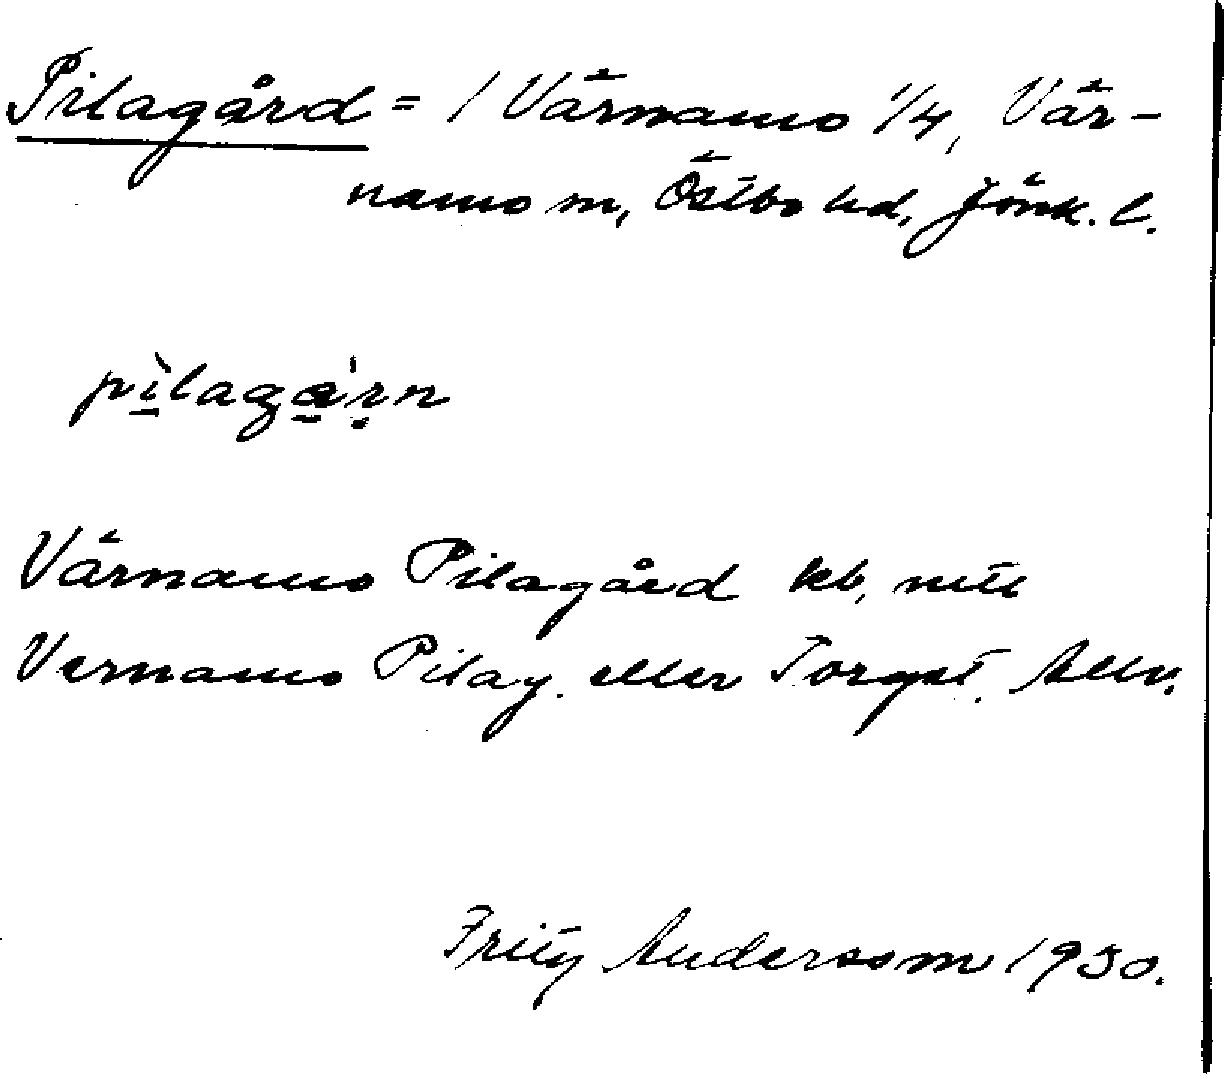 Pilagård = 1 Värnamo 1/4, Vär-
namo m, Östbo hd, Jönk. l.
pìlaga̍rn
Värnamo Pilagård kb,
Vernamo Pilag. eller Torget.
Fritz Andersson 1930.